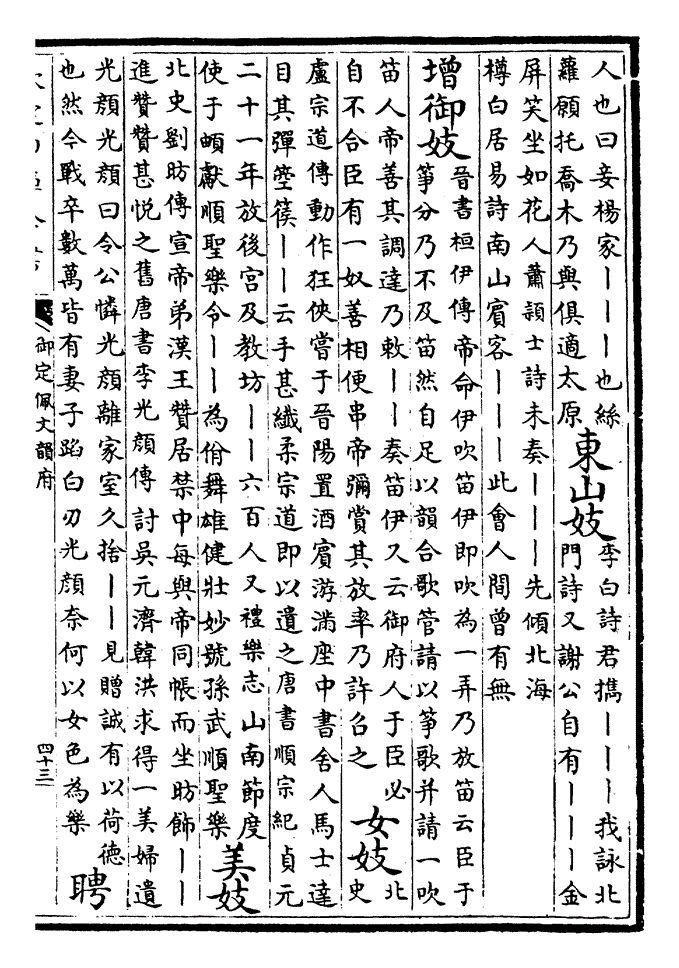 人也曰妾楊家｜｜｜也絲
蘿願托喬木乃與俱適太原
東山妓
李白詩君擕｜｜｜我詠北
門詩又謝公自有｜｜｜金
屏笑坐如花人蕭頴士詩未奏｜｜｜先傾北海
樽白居易詩南山賓客｜｜｜此會人間曾有無
增御妓
晉書桓伊傳帝命伊吹笛伊即吹為一弄乃放笛云臣于
箏分乃不及笛然自足以韻合歌管請以箏歌并請一吹
笛人帝善其調達乃敕｜｜奏笛伊又云御府人于臣必
自不合臣有一奴善相便串帝彌賞其放率乃許召之
女妓
北
史
盧宗道傳動作狂俠嘗于晉陽置酒賓游滿座中書舍人馬士達
目其彈箜篌｜｜云手甚纖柔宗道即以遺之唐書順宗紀貞元
二十一年放後宮及教坊｜｜六百人又禮樂志山南節度
使于頔獻順聖樂令｜｜為佾舞雄健壯妙號孫武順聖樂
美妓
北史劉昉傳宣帝弟漢王贊居禁中每與帝同帳而坐昉飾｜｜
進贊贊甚悅之舊唐書李光顔傳討吳元濟韓洪求得一美婦遺
光顔光顔曰令公憐光顔離家室久捨｜｜見贈誠有以荷德
也然今戰卒數萬皆有妻子蹈白刃光顔奈何以女色為樂
聘
御定佩文韻府
四十三